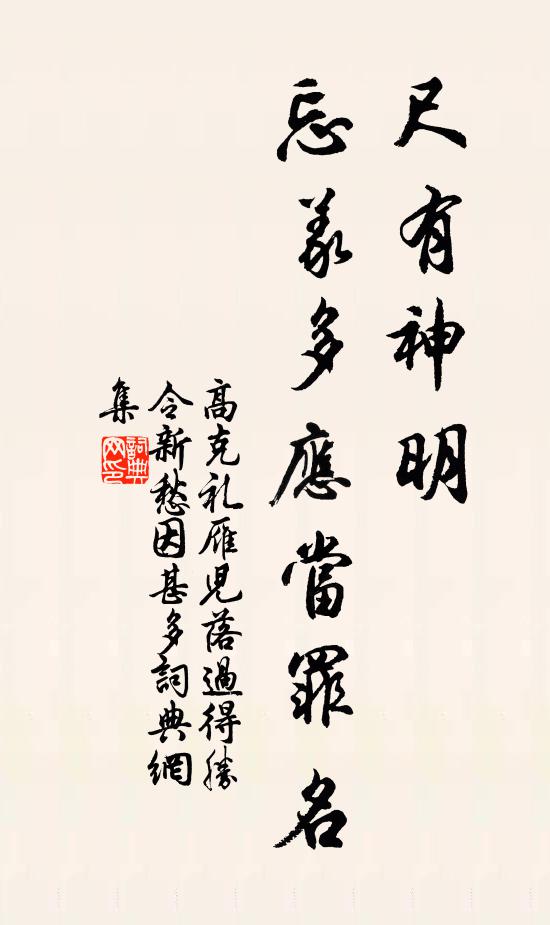 尺有神明
忘義多應當罪名
高克礼雁児落過得勝
令新愁因甚多詞典網
集
詞典網印